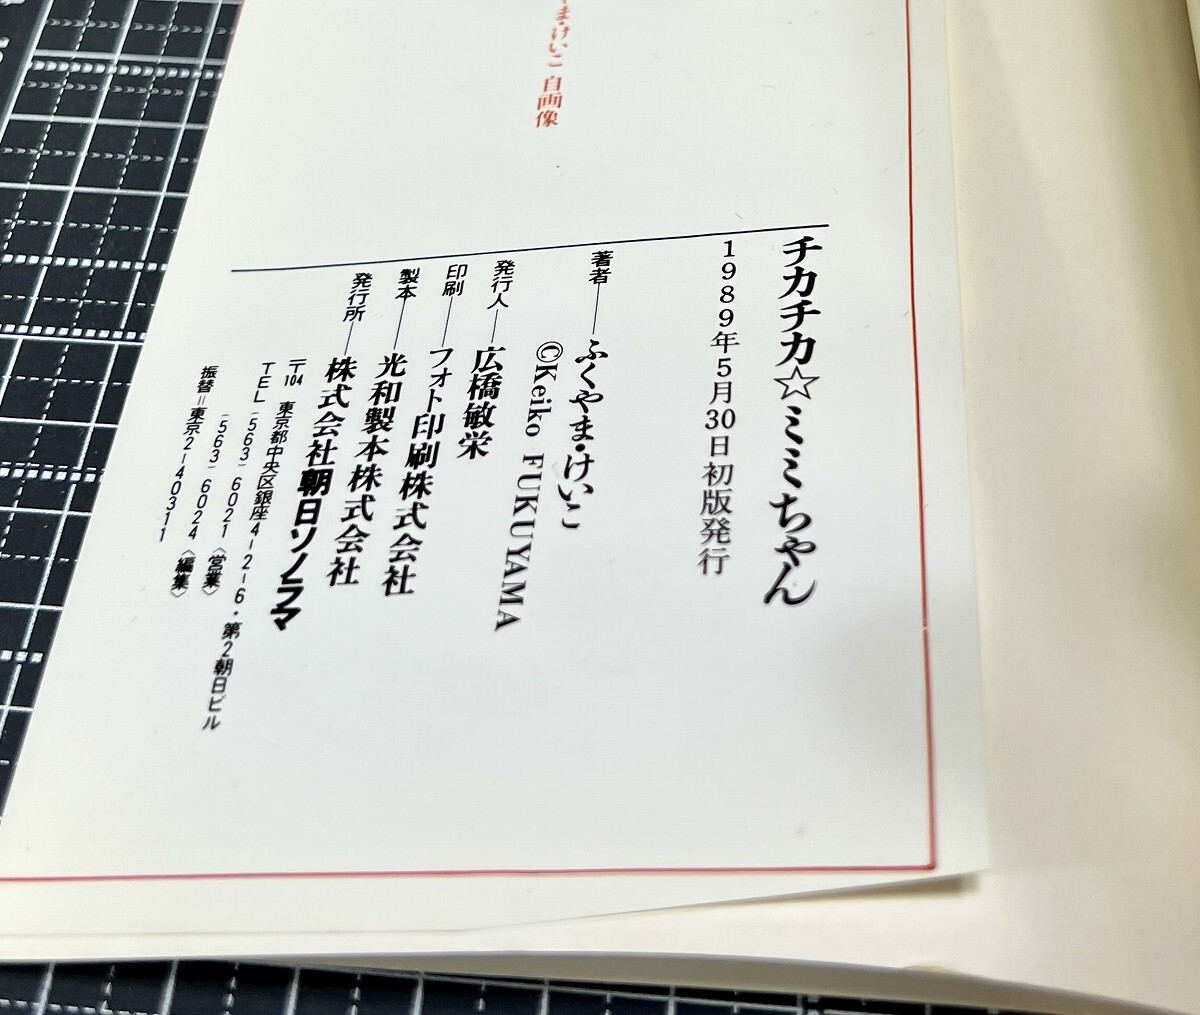 ま・けいこ 自画像
チカチカ☆ミミちゃん
1989年5月30日初版発行
著者――ふくやま・けいこ
©Keiko FUKUYAMA
発行人――広橋敏栄
印刷――フォト印刷株式会社
製本――光和製本株式会社
発行所――株式会社朝日ソノラマ
〒104 東京都中央区銀座4-2-6・第2朝日ビル
TEL(563)6021〈営業〉
(563)6024〈編集〉
振替=東京2-40311